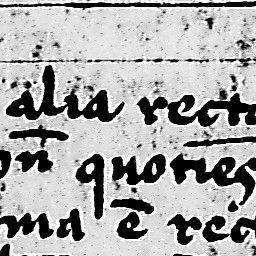 alia recto
on̄ quoties
ma ē rec